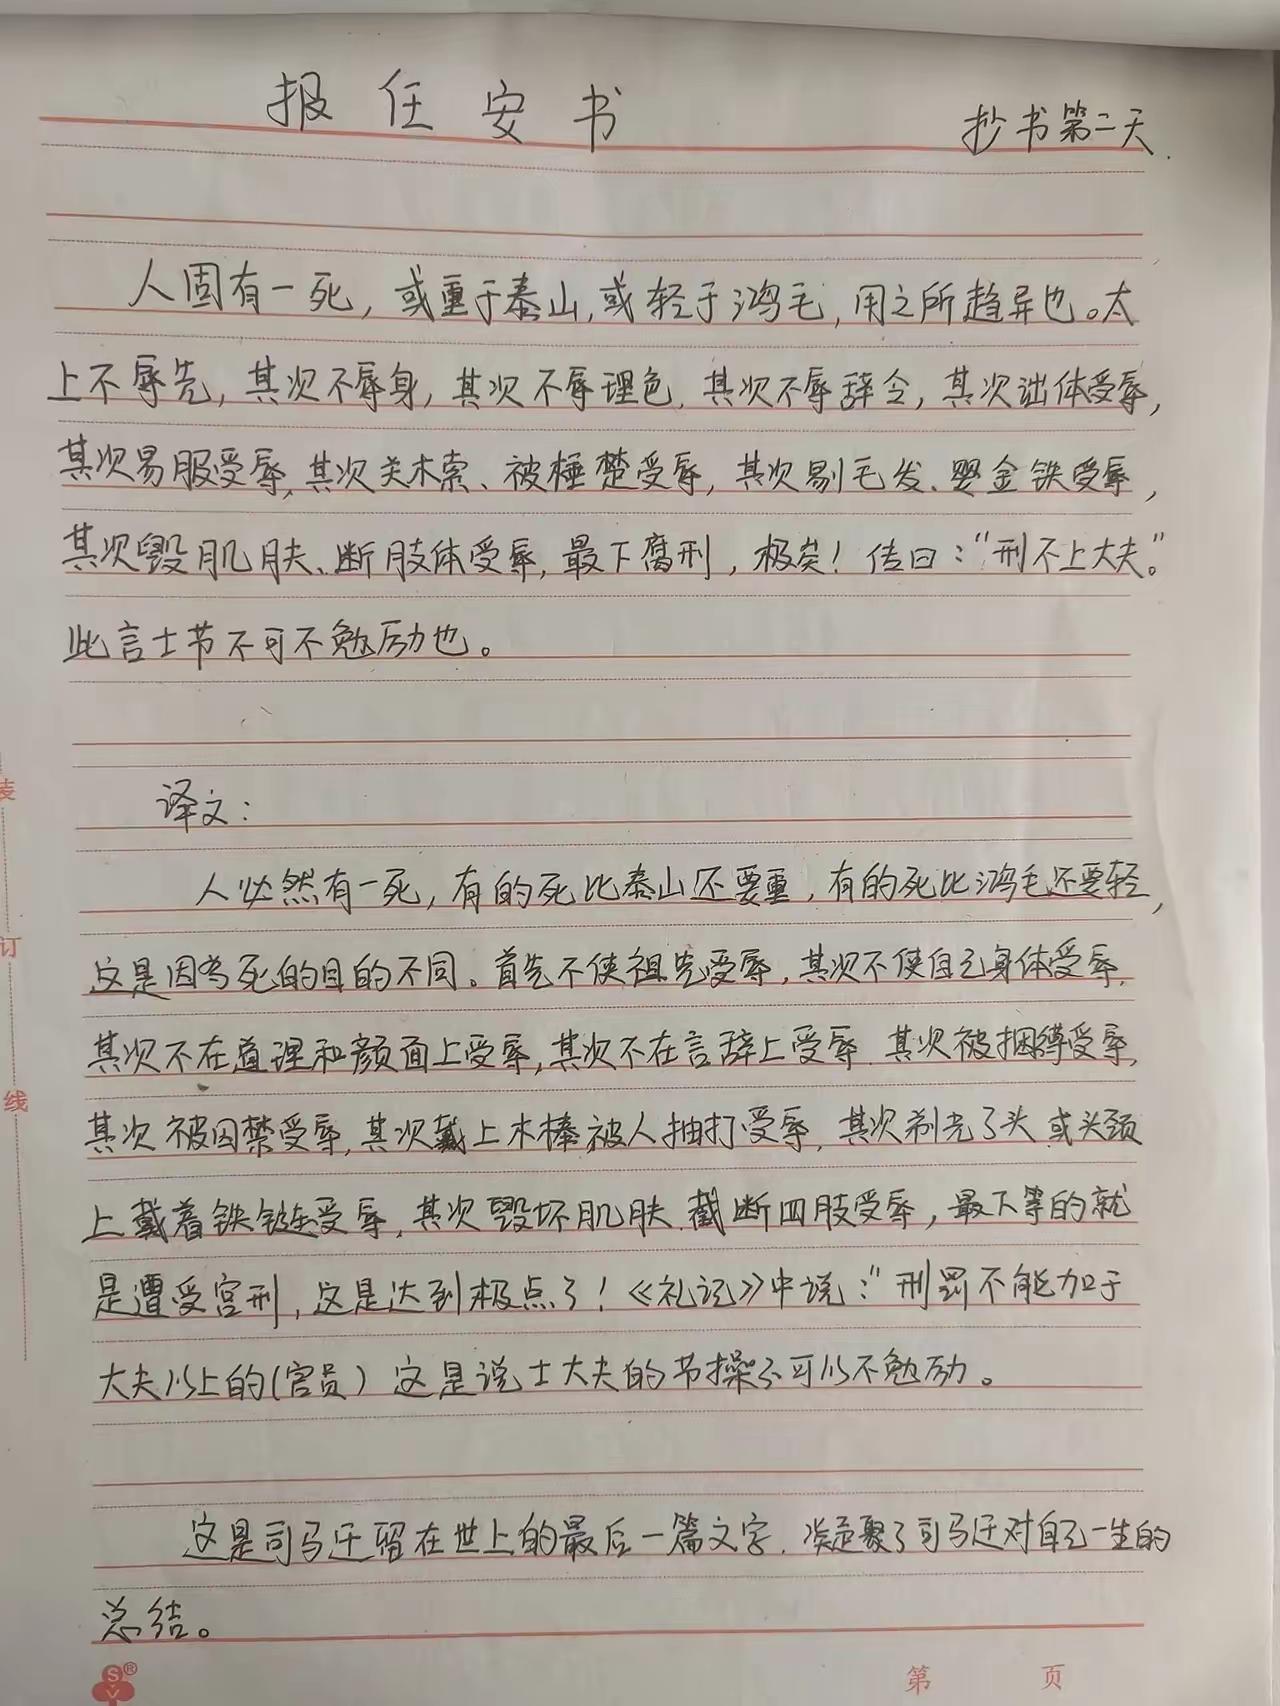 报任安书
抄书第二天.
人固有一死，或重于泰山，或轻于鸿毛，用之所趋异也。太
上不辱先，其次不辱身，其次不辱理色，其次不辱辞令，其次诎体受辱，
其次易服受辱，其次关木索、被棰楚受辱，其次剔毛发、婴金铁受辱，
其次毁肌肤、断肢体受辱，最下腐刑，极矣！传曰：“刑不上大夫”。
此言士节不可不勉励也。
译文：
人必然有一死，有的死比泰山还要重，有的死比鸿毛还要轻，
这是因为死的目的不同。首先不使祖先受辱，其次不使自己身体受辱，
其次不在道理和颜面上受辱，其次不在言辞上受辱，其次被捆缚受辱，
其次被囚禁受辱，其次戴上木棒被人抽打受辱，其次剃光了头或头颈
上戴着铁链受辱，其次毁坏肌肤、截断四肢受辱，最下等的就
是遭受宫刑，这是达到极点了！《礼记》中说：“刑罚不能加于
大夫以上的（官员）这是说士大夫的节操不可以不勉励。
这是司马迁留在世上的最后一篇文字，凝聚了司马迁对自己一生的
总结。
装
订
线
第 页